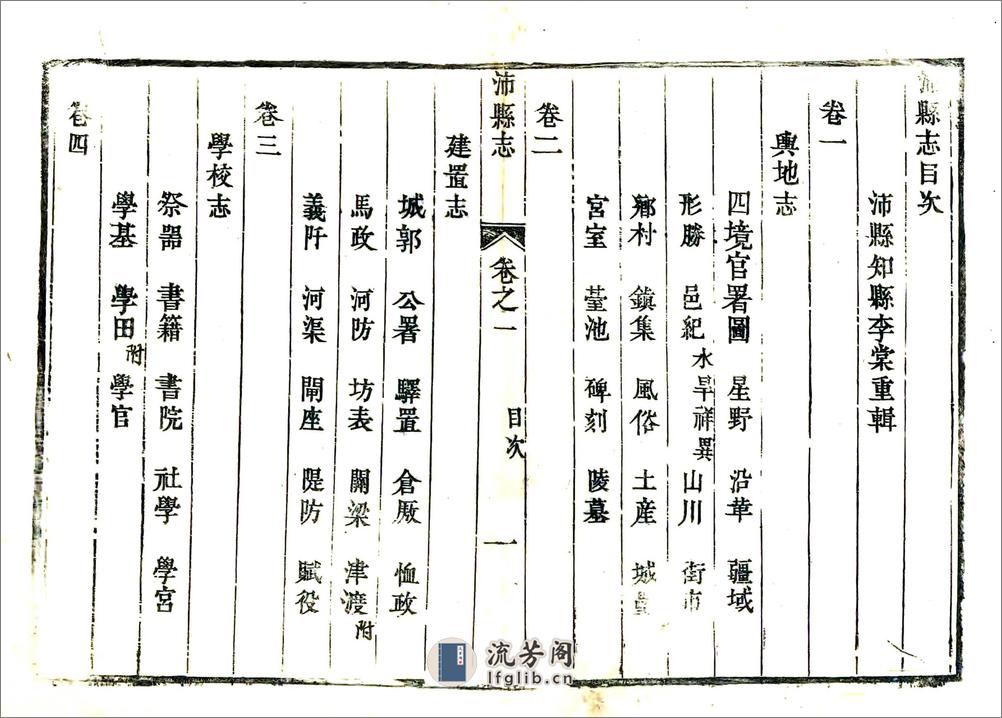 沛縣志目次
沛縣知縣李棠重輯
卷一
輿地志
四境官署圖 星野 沿革 疆域
形勝 邑紀 水旱祥異 山川 街市
鄉村 鎮集 風俗 土產 城堡
宮室 臺池 碑刻 陵墓
卷二
沛縣志 卷之一 目次 一
建置志
城郭 公署 驛置 倉廒 恤政
馬政 河防 坊表 關梁 津渡附
義阡 河渠 閘座 隄防 賦役
卷三
學校志
祭器 書籍 書院 社學 學宮
學基 學田附 學官
卷四
流芳阁
lfglib.cn